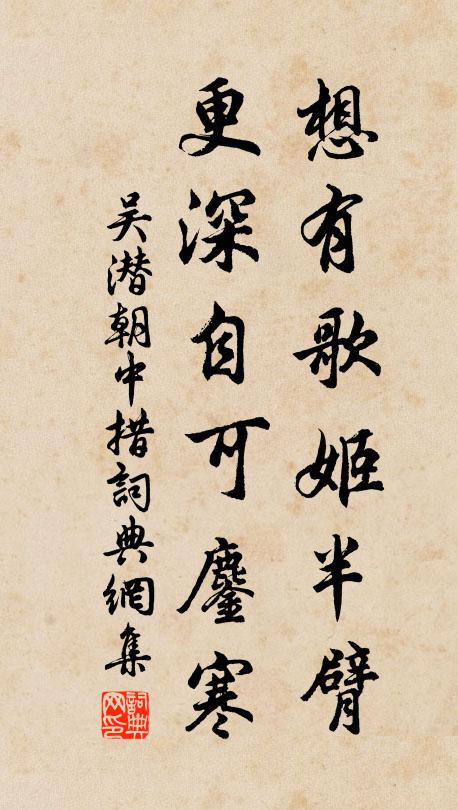 想有歌姬半臂
更深自可鏖寒
吴潜朝中措詞典網集
詞典网印